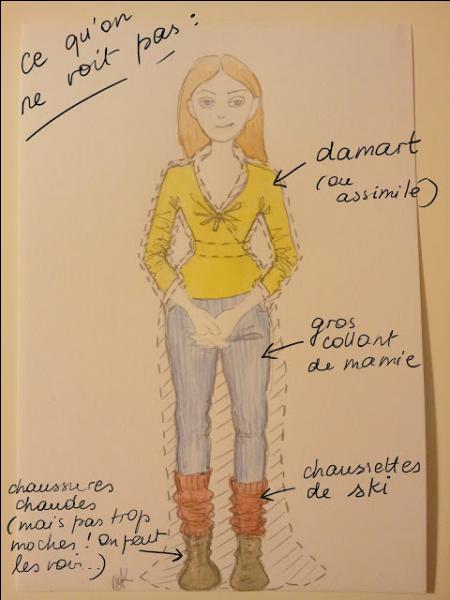 ce qu'on
ne voit pas :
damart
(ou
assimilé)
gros
collant
de mamie
chaussettes
de ski
chaussures
chaudes
(mais pas trop
moches ! On peut
les voir...)